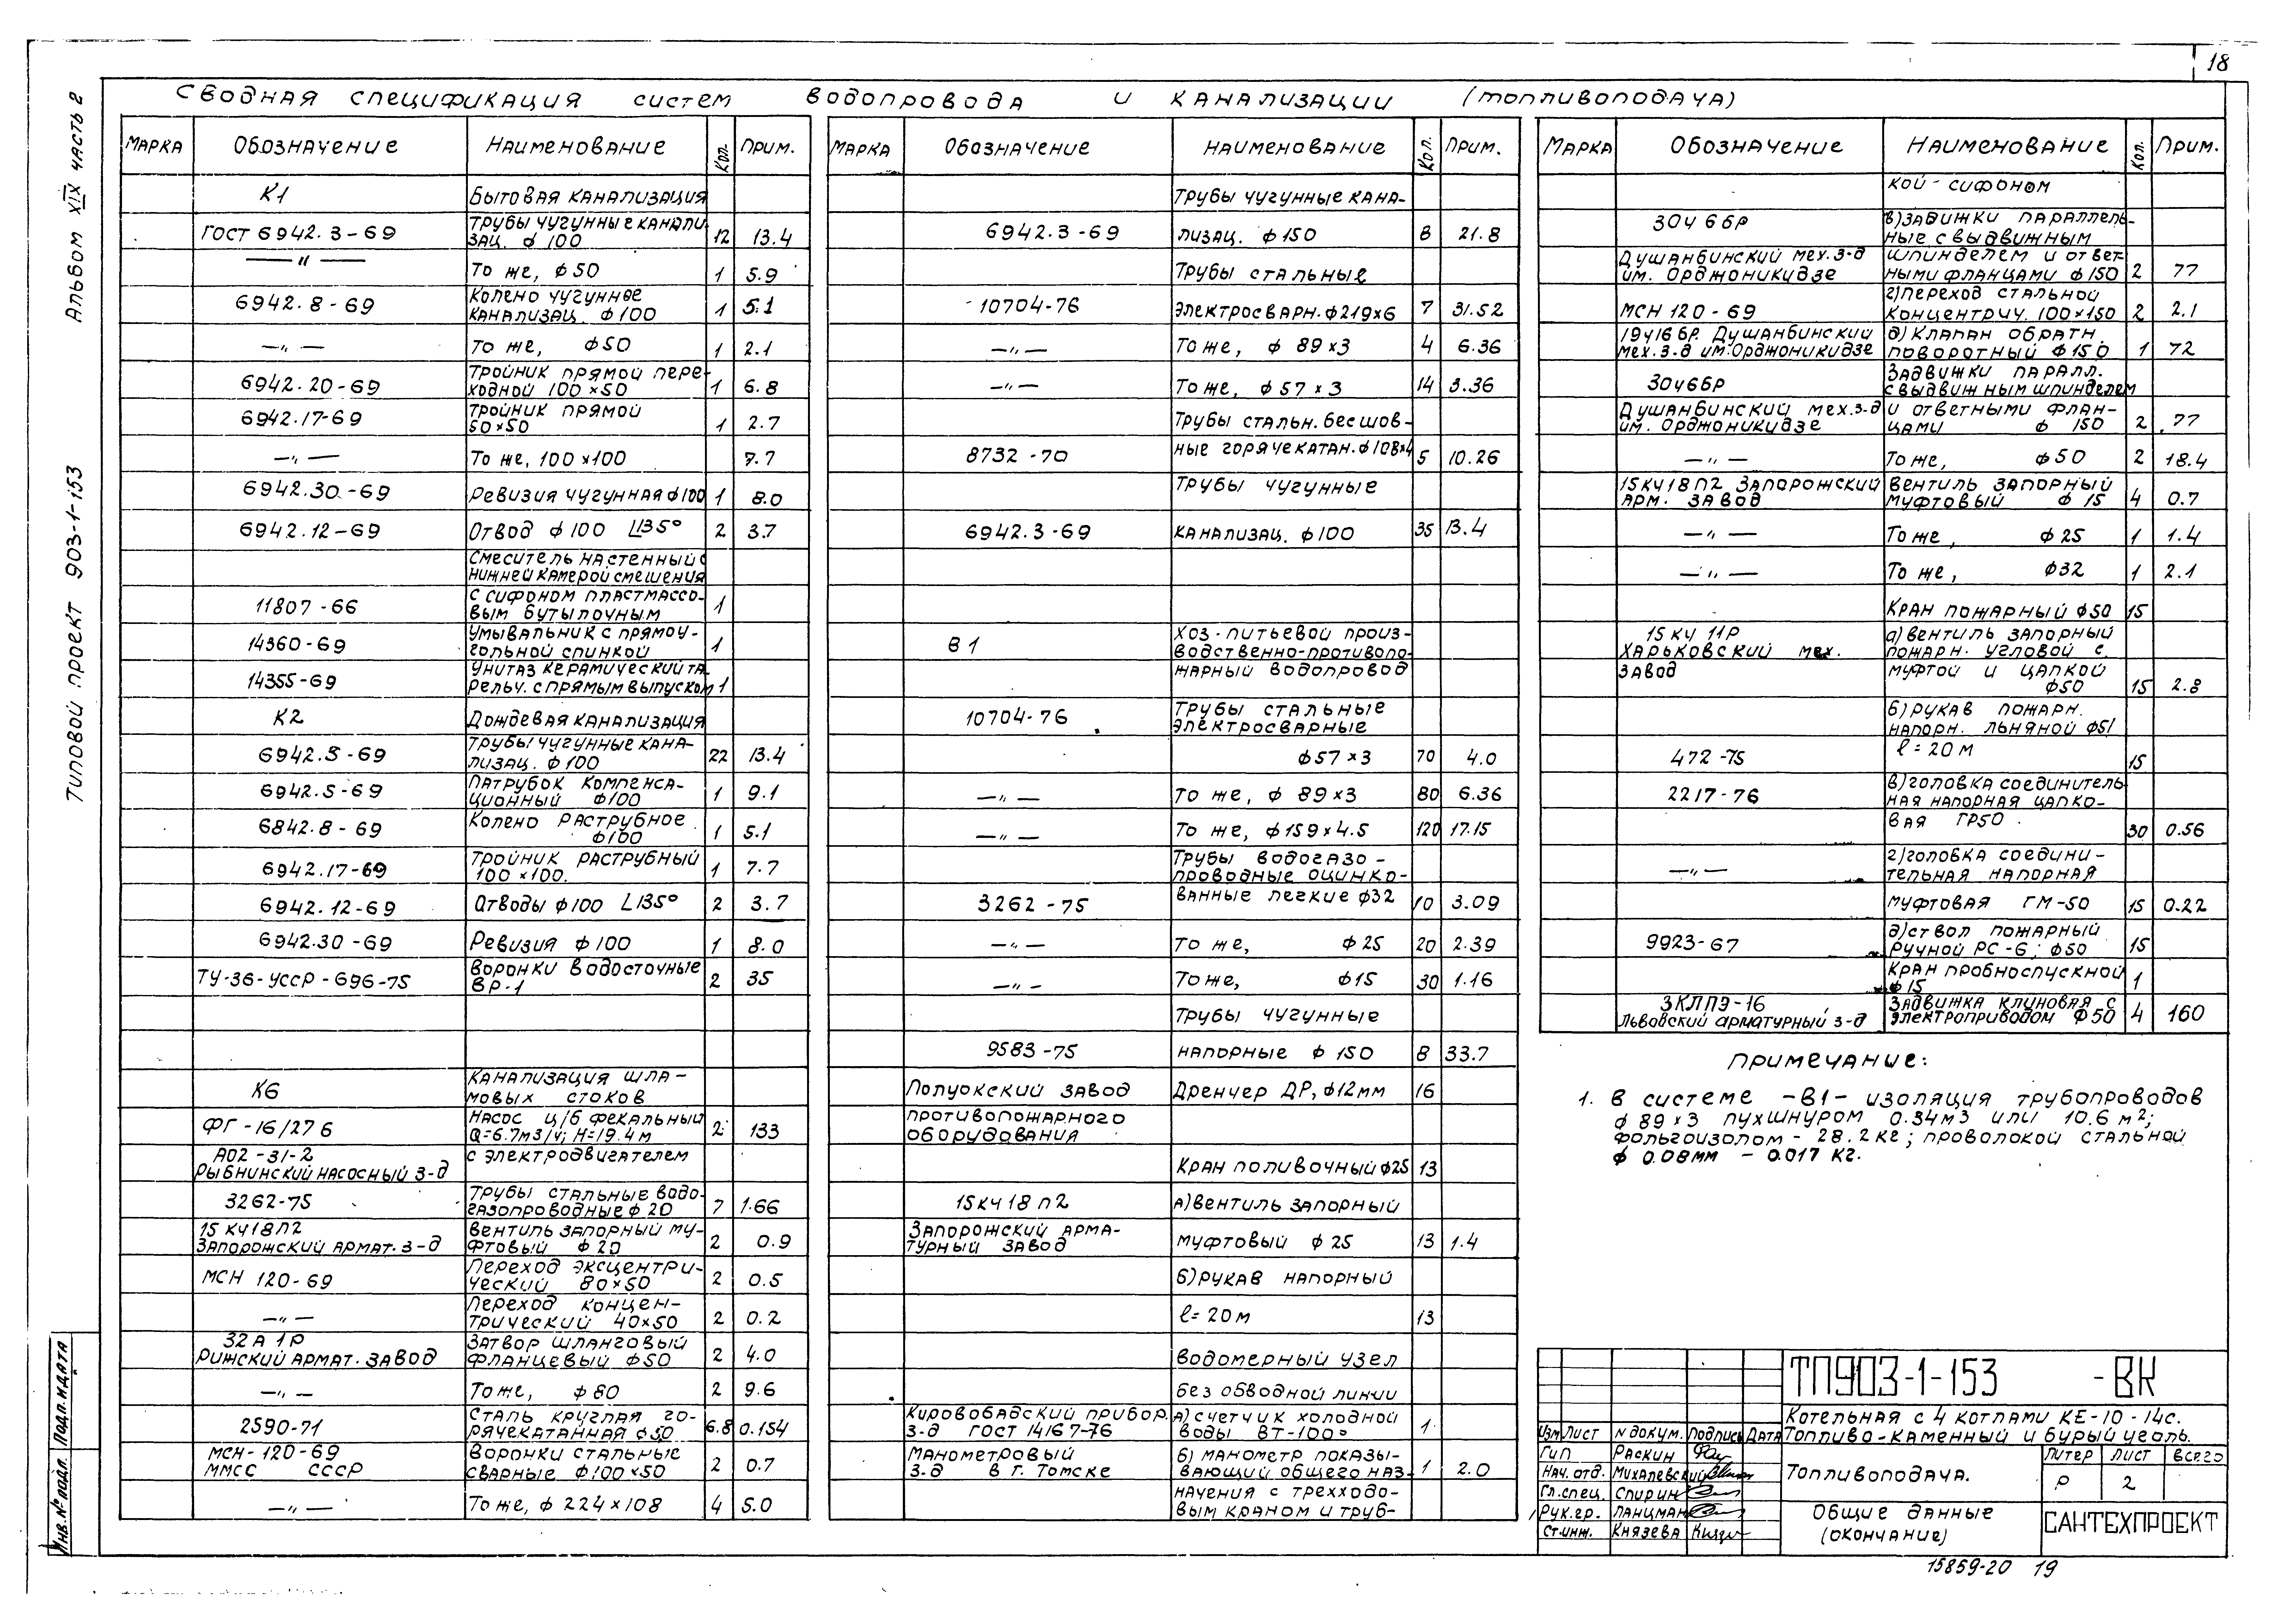 18
Сводная спецификация систем водопровода и канализации (топливоподача)
Альбом XIX часть 2
Типовой проект 903-1-153
Марка Обозначение Наименование Кол. Прим.
К1 Бытовая канализация
ГОСТ 6942.3-69 Трубы чугунные канали
зац. ф 100 12 13.4
—〃— То же, ф 50 1 5.9
6942.8-69 Колено чугунное
канализац. ф 100 1 5.1
—〃— То же, ф50 1 2.1
6942.20-69 Тройник прямой пере-
ходной 100×50 1 6.8
6942.17-69 Тройник прямой
50×50 1 2.7
—〃— То же, 100×100 7.7
6942.30-69 Ревизия чугунная ф100 1 8.0
6942.12-69 Отвод ф 100 L135° 2 3.7
Смеситель настенный с
нижней камерой смешения
11807-66 с сифоном пластмассо-
вым бутылочным 1
14360-69 Умывальник с прямоу-
гольной спинкой 1
14355-69 Унитаз керамический та
рельч. с прямым выпуском 1
К2 Дождевая канализация
6942.5-69 Трубы чугунные кана-
лизац. ф 100 22 13.4
6942.5-69 Патрубок компенса-
ционный ф100 1 9.1
6842.8-69 Колено раструбное
ф100 1 5.1
6942.17-69 Тройник раструбный
100×100. 1 7.7
6942.12-69 Отводы ф100 L135° 2 3.7
6942.30-69 Ревизия ф 100 1 8.0
ТУ-36-УССР-696-75 Воронки водосточные
ВР-1 2 35
К6 Канализация шла-
мовых стоков
ФГ-16/27 б Насос ц/б фекальный
Q=6.7м3/ч; Н=19.4 м 2 133
А02-31-2 с электродвигателем
Рыбнинский насосный з-д
3262-75 Трубы стальные водо-
газопроводные ф 20 7 1.66
15 кч18п2 Вентиль запорный му-
Запорожский армат. з-д фтовый ф 20 2 0.9
МСН 120-69 Переход эксцентри-
ческий 80×50 2 0.5
—〃— Переход концен-
трический 40×50 2 0.2
32 А 1Р Затвор шланговый
Рижский армат. завод фланцевый ф50 2 4.0
—〃— То же, ф 80 2 9.6
2590-71 Сталь круглая го-
рячекатанная ф50 6.8 0.154
МСН-120-69 Воронки стальные
ММСС СССР сварные ф100×50 2 0.7
—〃— То же, ф 224×108 4 5.0
Марка Обозначение Наименование Кол. Прим.
Трубы чугунные кана-
6942.3-69 лизац. ф 150 8 21.8
Трубы стальные
10704-76 электросварн. ф219×6 7 31.52
—〃— То же, ф 89×3 4 6.36
—〃— То же, ф 57×3 14 3.36
Трубы стальн. бесшов-
8732-70 ные горячекатан. ф108×4 5 10.26
Трубы чугунные
6942.3-69 канализац. ф 100 35 13.4
В1 Хоз-питьевой произ-
водственно-противопо-
жарный водопровод
10704-76 Трубы стальные
электросварные
ф57×3 70 4.0
—〃— То же, ф 89×3 80 6.36
—〃— То же, ф159×4.5 120 17.15
Трубы водогазо-
проводные оцинко-
3262-75 ванные легкие ф32 10 3.09
—〃— То же, ф 25 20 2.39
—〃— То же, ф15 30 1.16
Трубы чугунные
9583-75 напорные ф 150 8 33.7
Полуокский завод Дренчер ДР, ф12мм 16
противопожарного
оборудования
Кран поливочный ф25 13
15кч18п2 а)вентиль запорный
Запорожский арма-
турный завод муфтовый ф 25 13 1.4
б)рукав напорный
l=20м 13
Водомерный узел
без обводной линии
Кировобадский прибор. а)счетчик холодной
з-д ГОСТ 14167-76 воды ВТ-100° 1
Манометровый б) манометр показы-
з-д в г. Томске вающий общего наз- 1 2.0
начения с трехходо-
вым краном и труб-
Марка Обозначение Наименование Кол. Прим.
кой-сифоном
30ч 6бр в)задвижки параллель-
ные с выдвижным
Душанбинский мех. з-д шпинделем и ответ-
им. Орджоникидзе ными фланцами ф150 2 77
МСН 120-69 г)переход стальной
концентрич. 100×150 2 2.1
19ч16бр. Душанбинский д) Клапан обратн.
мех. з-д им. Орджоникидзе поворотный ф150 1 72
30ч6бр Задвижки паралл.
с выдвижным шпинделем
Душанбинский мех. з-д и ответными флан-
им. Орджоникидзе цами ф 150 2 77
—〃— То же, ф50 2 18.4
15кч18п2 Запорожский Вентиль запорный
арм. завод муфтовый ф 15 4 0.7
—〃— То же, ф 25 1 1.4
—〃— То же, ф32 1 2.1
Кран пожарный ф50 15
15 кч 11р а)вентиль запорный
Харьковский мех. пожарн. угловой с
завод муфтой и цапкой
ф50 15 2.8
б)рукав пожарн.
напорн. льняной ф51
472-75 l=20м 15
2217-76 в)головка соединитель
ная напорная цапко-
вая ГР50 30 0.56
—〃— г)головка соедини-
тельная напорная
муфтовая ГМ-50 15 0.22
9923-67 д)ствол пожарный
ручной РС-6; ф50 15
Кран пробноспускной
ф15 1
ЗКЛПЭ-16 Задвижка клиновая с
Львовский арматурный з-д электроприводом ф50 4 160
Примечание:
1. В системе -В1- изоляция трубопроводов
ф 89×3 пухшнуром 0.34м3 или 10.6 м²;
фольгоизолом-28.2кг; проволокой стальной
ф 0.08мм - 0.017 кг.
ТП903-1-153 -ВК
Котельная с 4 котлами КЕ-10-14с.
Топливо-каменный и бурый уголь.
Изм Лист N докум. Подпись Дата
ГИП Раскин
Нач. отд. Михалевский
Гл. спец. Спирин
Рук. гр. Ланцман
Ст. инж. Князева
Топливоподача.
Литер Лист Всего
Р 2
Общие данные
(окончание)
САНТЕХПРОЕКТ
15859-20 19
Инв.№ подл. Подп. и дата